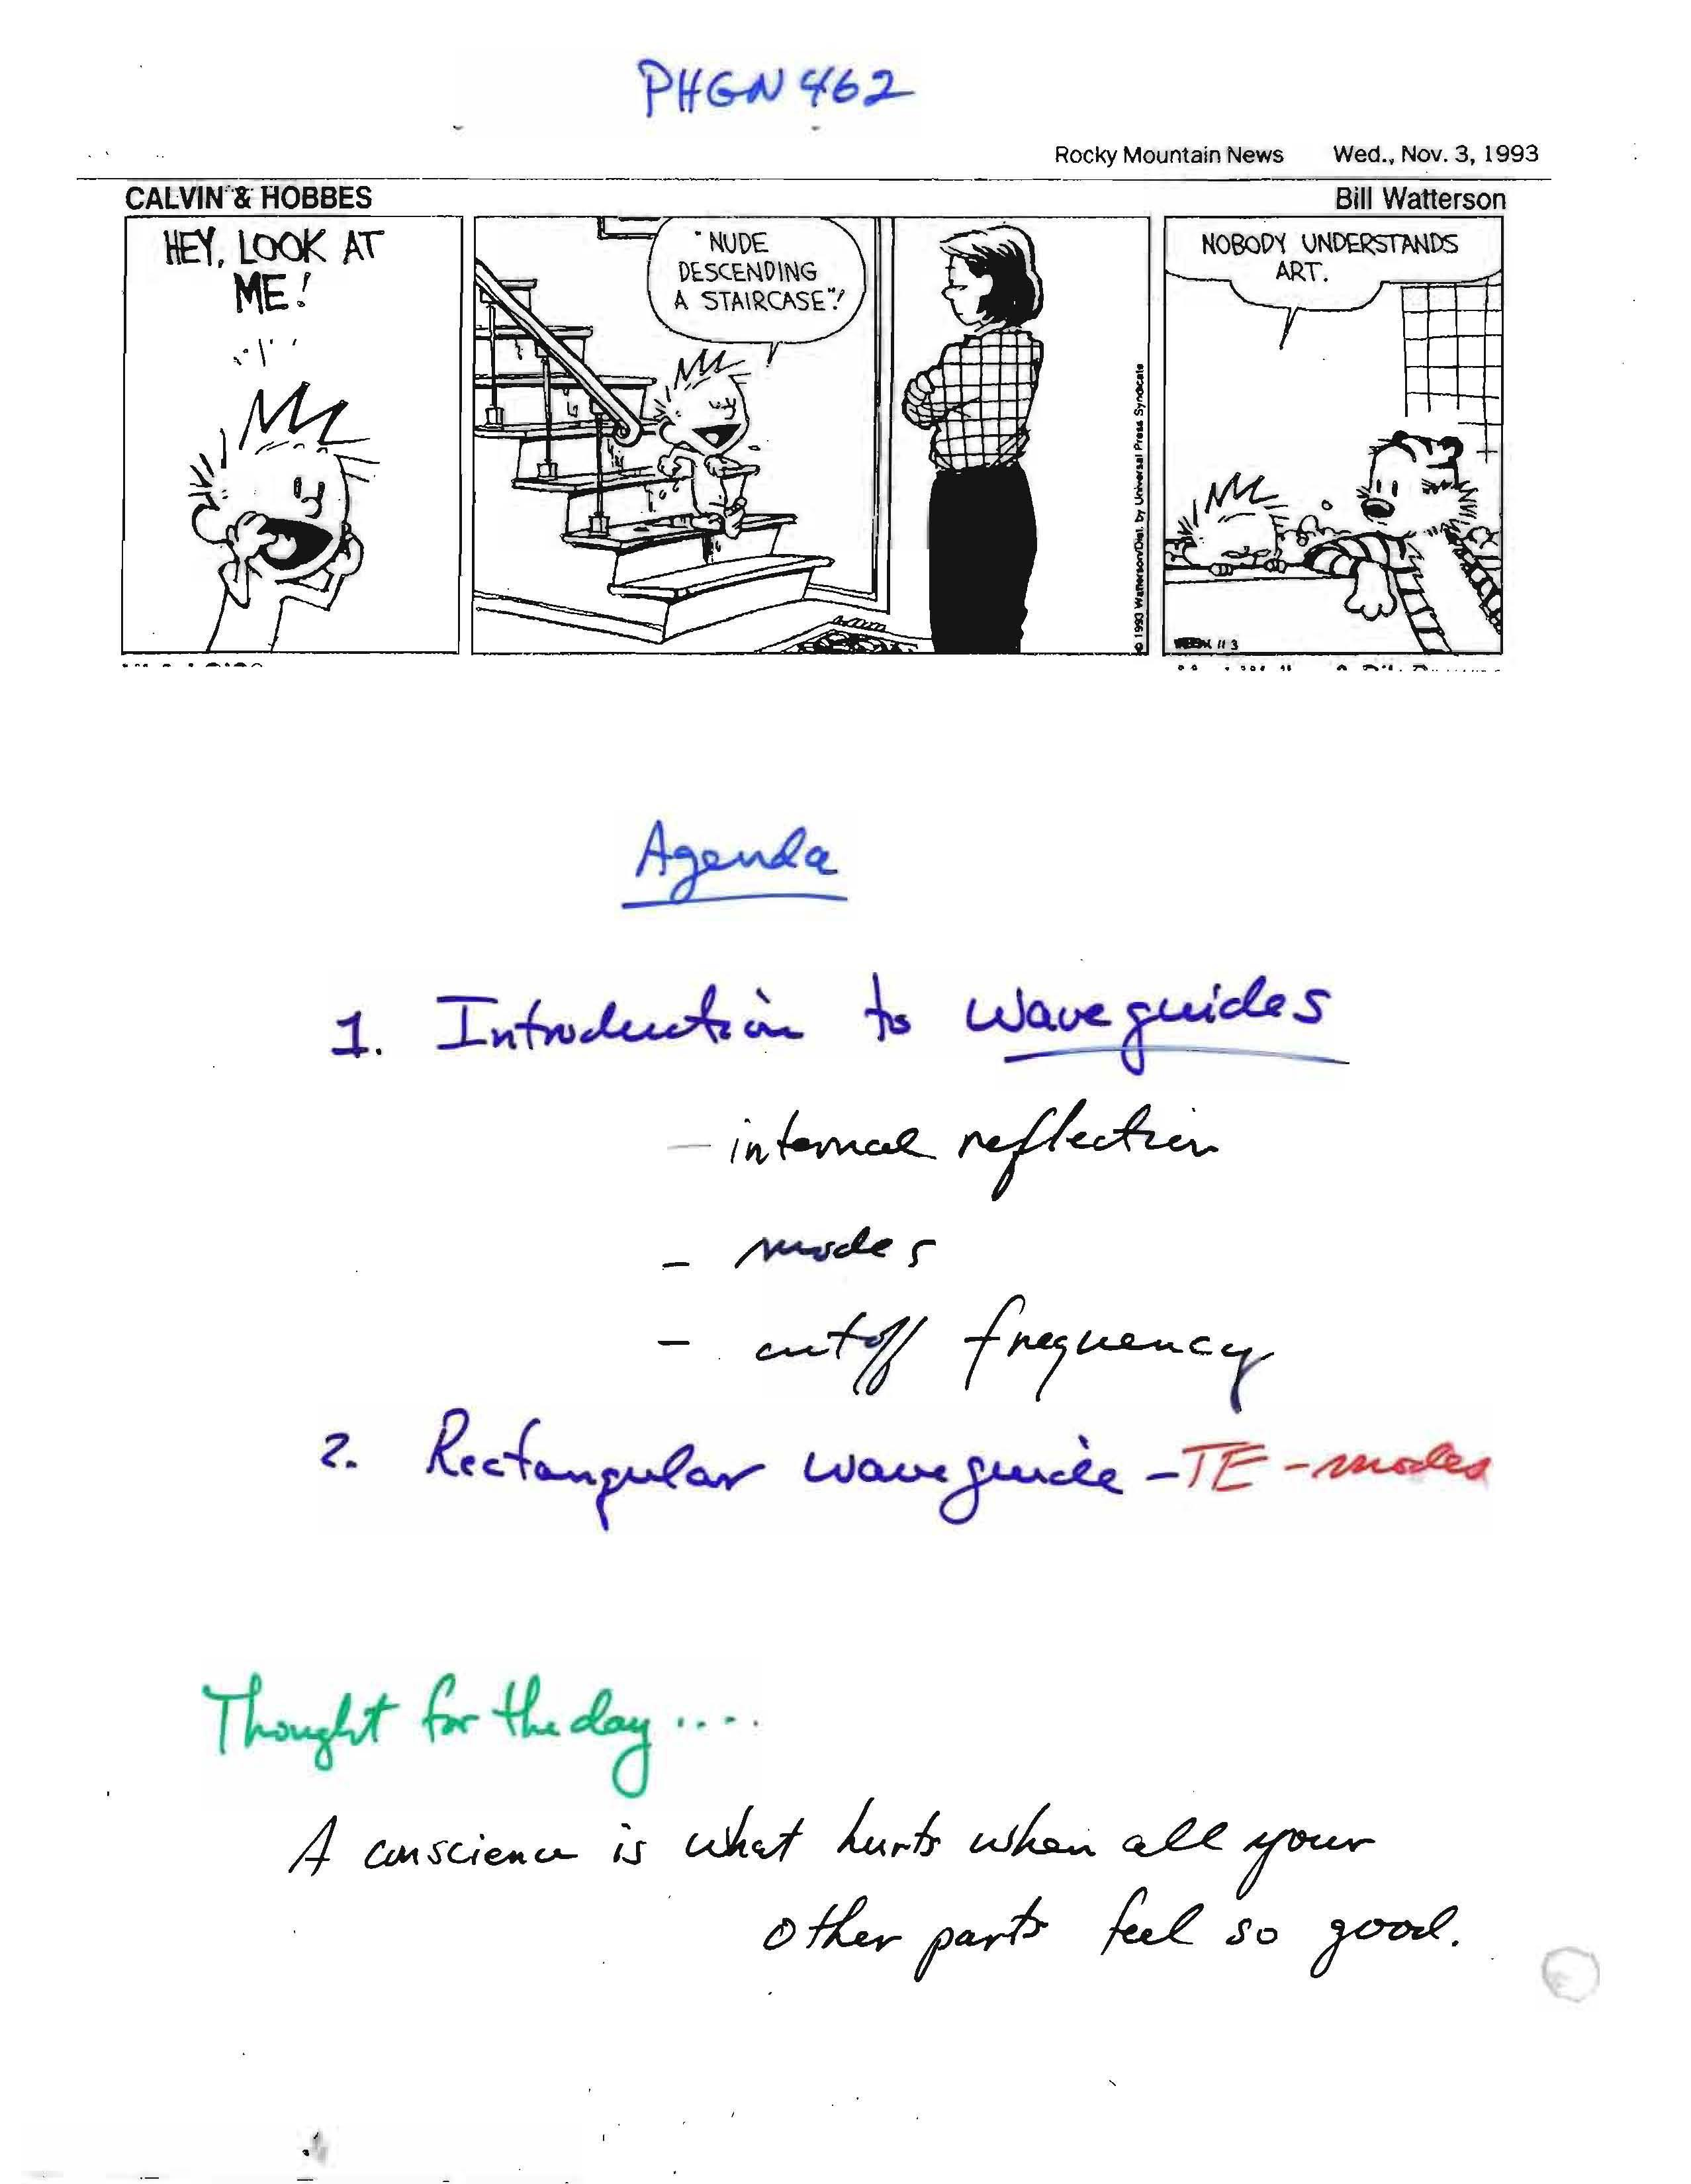 PHGN 462
Rocky Mountain News Wed., Nov. 3, 1993
CALVIN & HOBBES Bill Watterson
HEY, LOOK AT
ME!
"NUDE
DESCENDING
A STAIRCASE"!
© 1993 Watterson/Dist. by Universal Press Syndicate
NOBODY UNDERSTANDS
ART.
11 3
Agenda
1. Introduction to waveguides
- internal reflection
- modes
- cutoff frequency
2. Rectangular waveguide - TE - modes
Thought for the day....
A conscience is what hurts when all your
other parts feel so good.